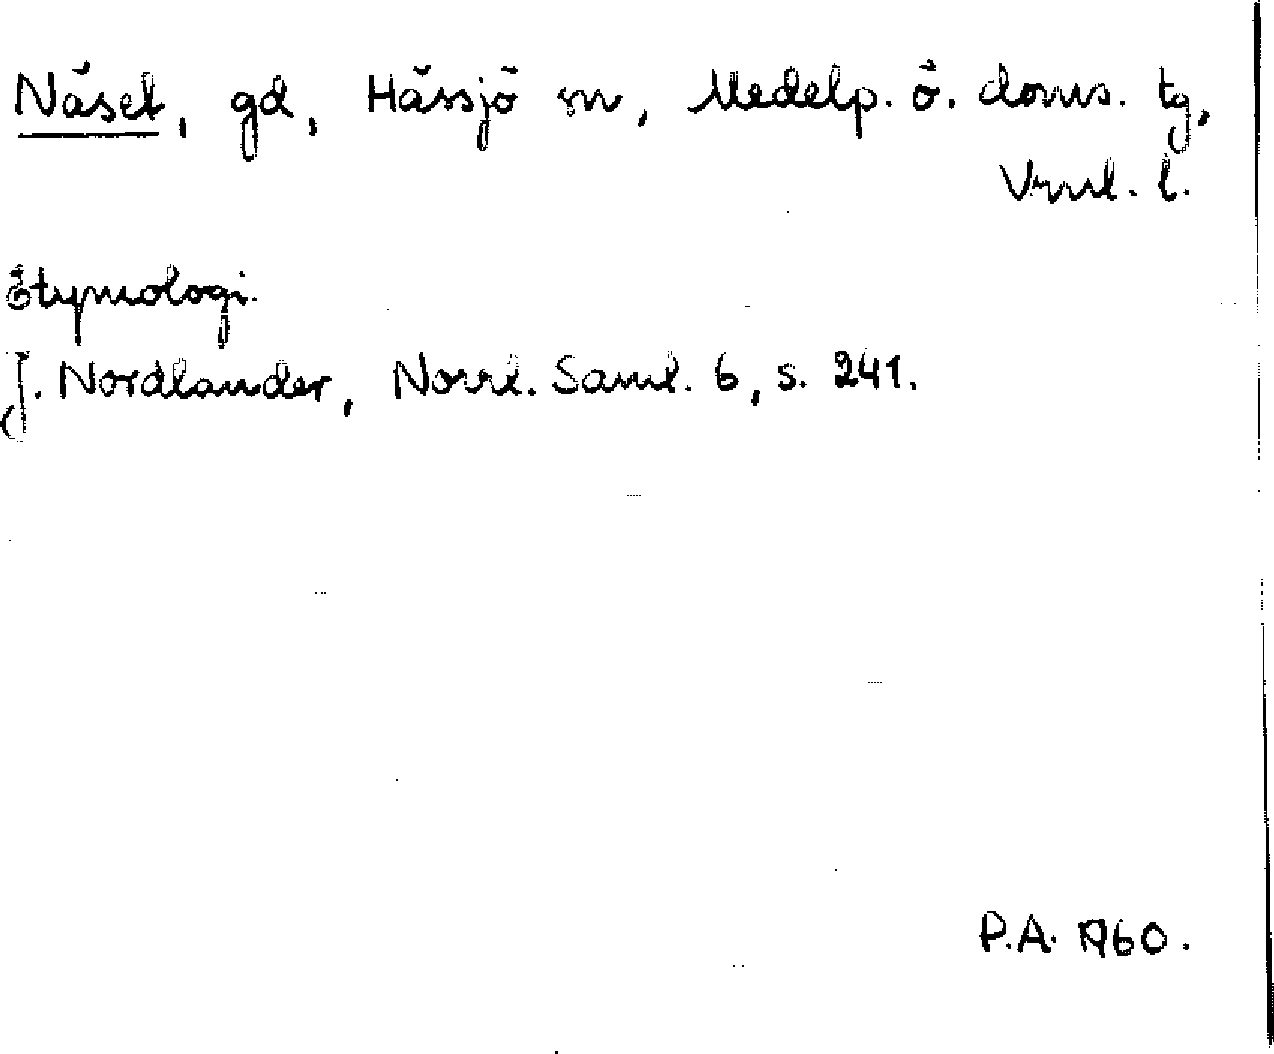 Näset, gd, Hässjö sn, Medelp. ö. doms. tg,
Vrnl. l.
Etymologi.
J. Nordlander, Norrl. Saml. 6, s. 241.
P.A. 1960.